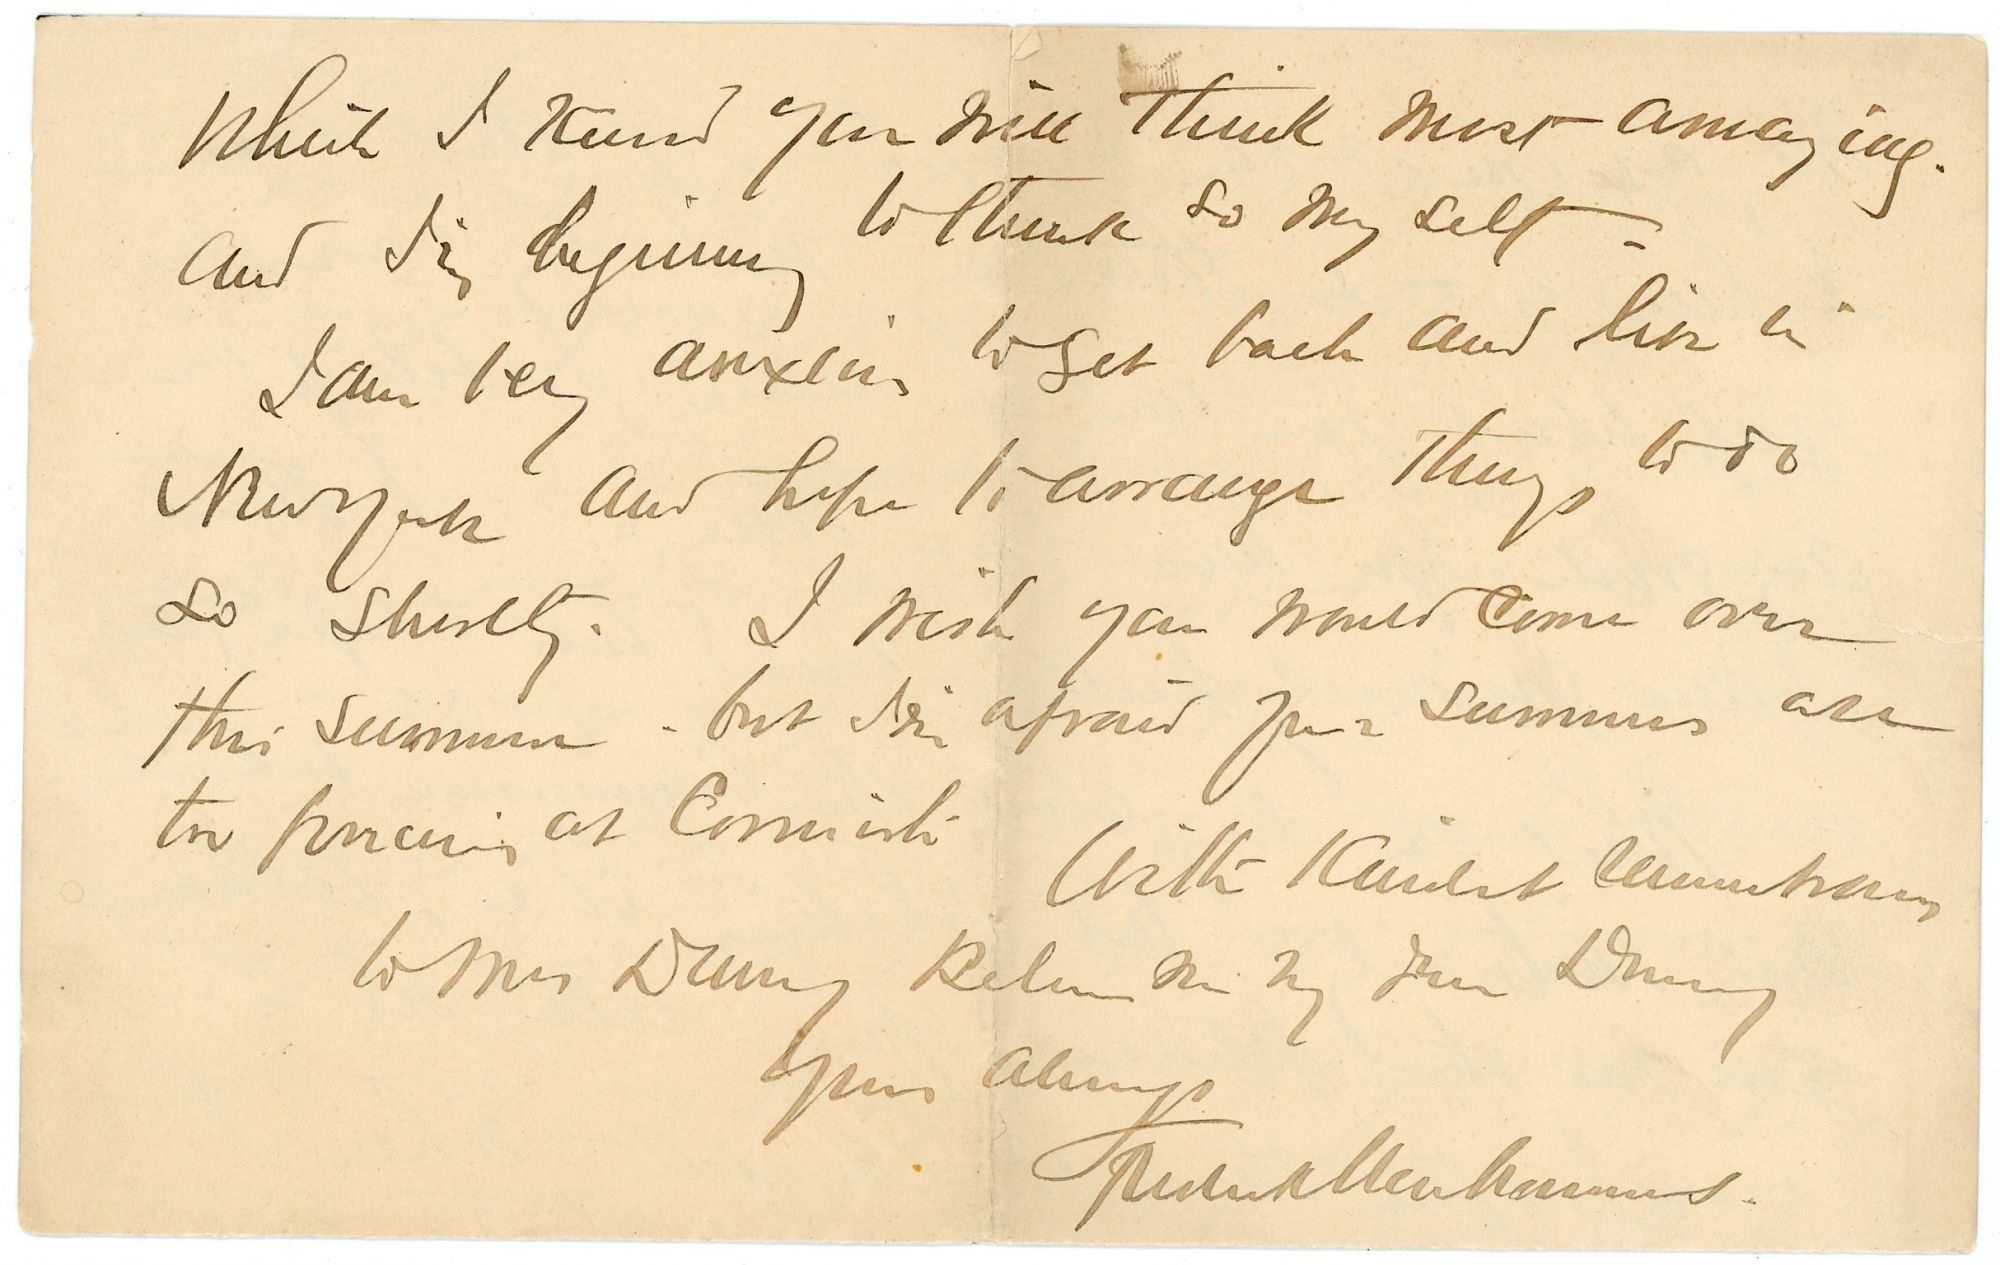 which I know you will think most amazing.
and I'm beginning to think so myself -
I am very anxious to get back and live in
New York and hope to arrange things to do
so shortly. I wish you would come over
this summer - but I'm afraid your summers are
too precious at Cornish
With kindest remembrances
to Mrs Dewing Believe me my dear Dewing
Yours always
Frederick MacMonnies.